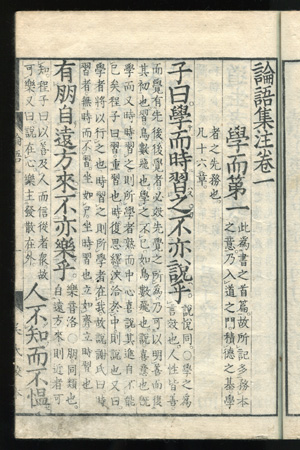 論語集注卷一
學而第一
此爲書之首篇故所記多務本
之意乃入道之門積德之基學
者之先務也
凡十六章
子曰學而時習之不亦說乎
說悅同○學之爲
言效也人性皆善
而覺有先後後覺者必效先覺之所爲乃可以明善而復
其初也習鳥數飛也學之不已如鳥數飛也說喜意也旣
學而又時時習之則所學者熟而中心喜說其進自不能
已矣程子曰習重習也時復思繹浹洽於中則說也又曰
學者將以行之也時習之則所學者在我故說謝氏曰時
習者無時而不習坐如尸坐時習也立如齊立時習也
有朋自遠方來不亦樂乎
樂音洛○朋同類也
自遠方來則近者可
知程子曰以善及人而信從者衆故
可樂又曰說在心樂主發散在外
人不知而不慍